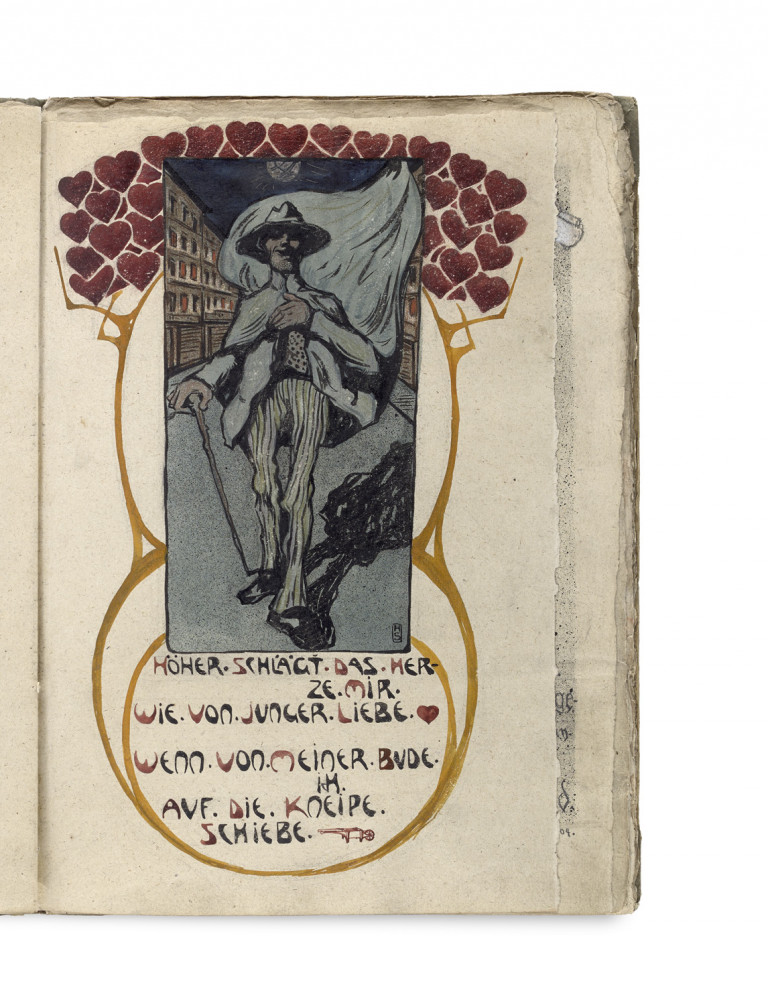 HÖHER · SCHLÄGT · DAS · HER-
ZE · MIR ·
WIE · VON · JUNGER · LIEBE ·
WENN · VON · MEINER · BUDE ·
ICH ·
AUF · DIE · KNEIPE ·
SCHIEBE ·